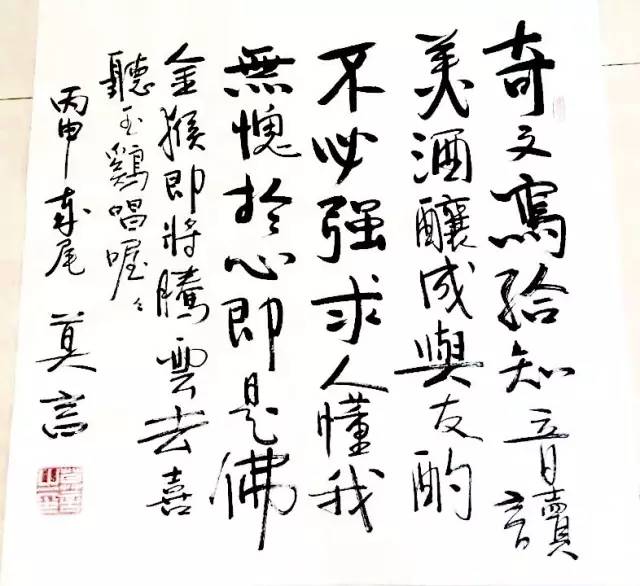 奇文寫給知音讀
美酒釀成與友酌
不必强求人懂我
無愧於心即是佛
金猴即將騰雲去喜
聽玉鷄唱喔々
丙申歲尾 莫言